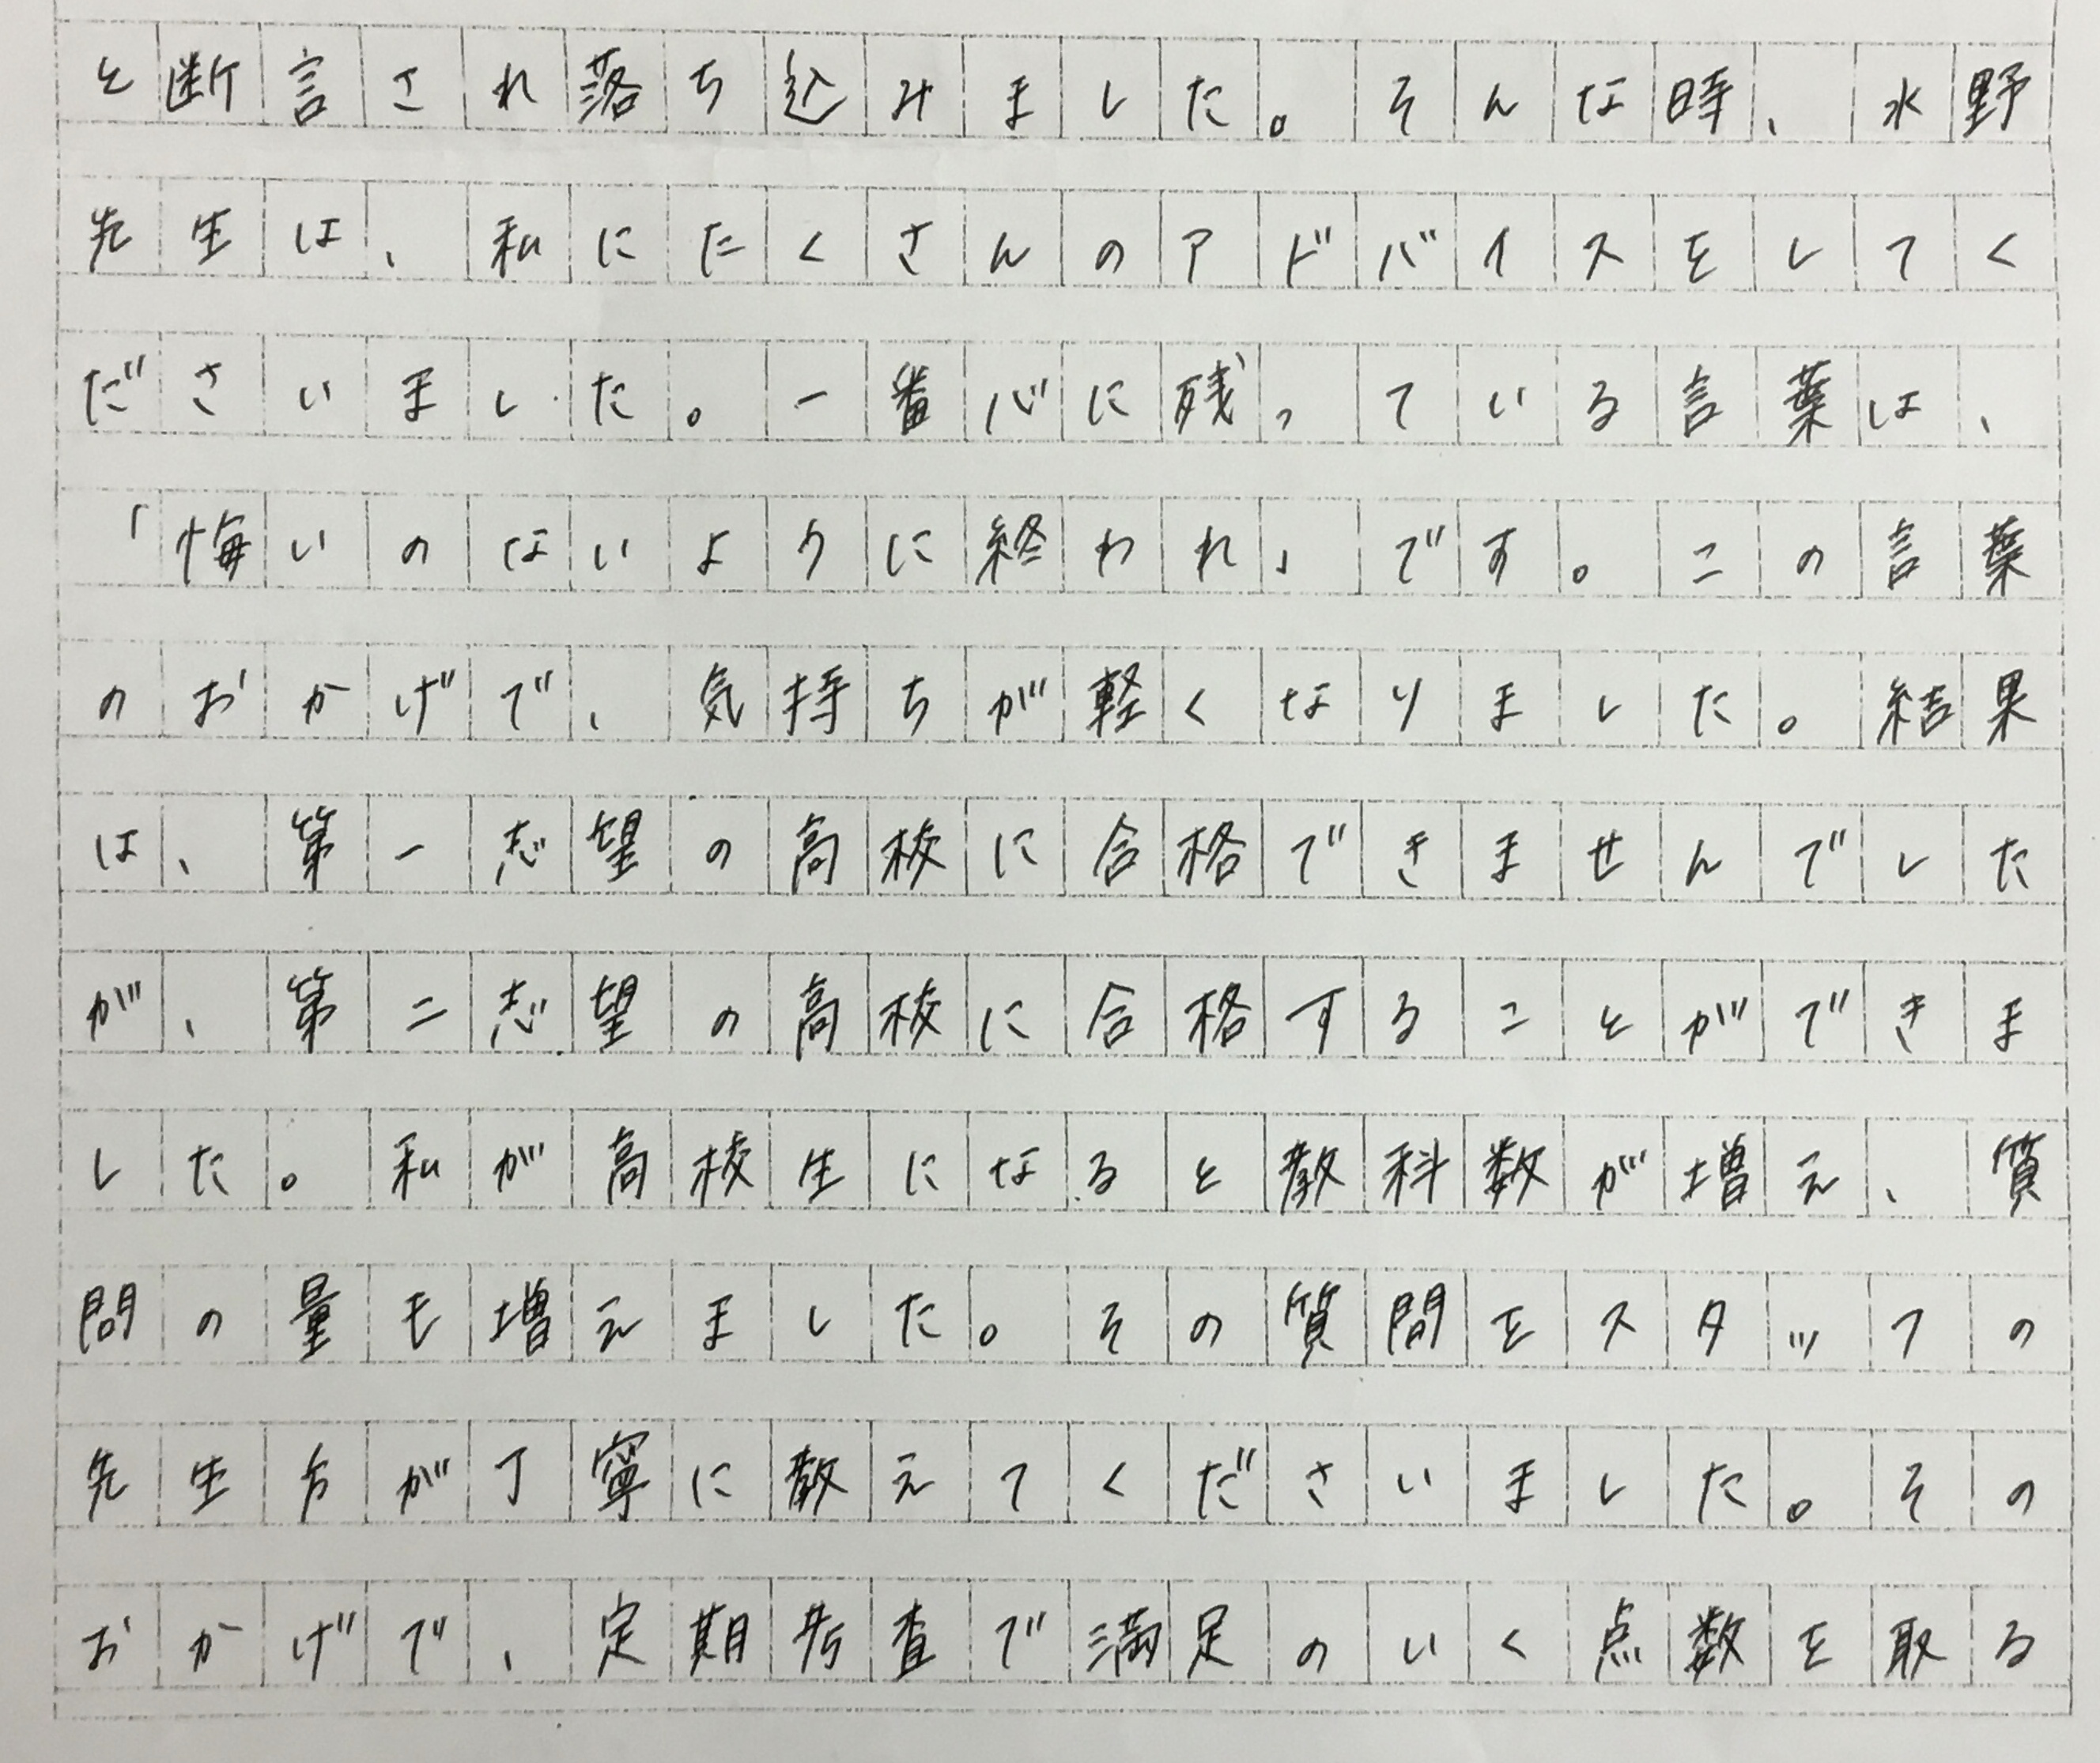 と断言され落ち込みました。そんな時、水野
先生は、私にたくさんのアドバイスをしてく
ださいました。一番心に残っている言葉は、
「悔いのないように終われ」です。この言葉
のおかげで、気持ちが軽くなりました。結果
は、第一志望の高校に合格できませんでした
が、第二志望の高校に合格することができま
した。私が高校生になると教科数が増え、質
問の量も増えました。その質問をスタッフの
先生方が丁寧に教えてくださいました。その
おかげで、定期考査で満足のいく点数を取る